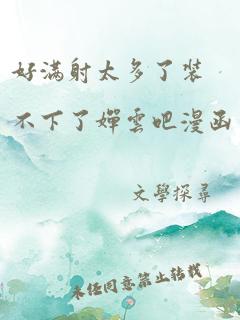 好满射太多了装
不下了婵云吧漫画
文學探尋
未经同意禁止转载